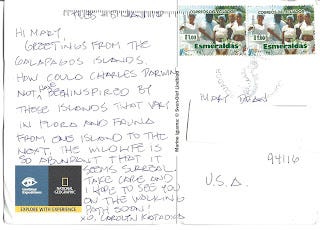 HI MARY,
GREETINGS FROM THE
GALAPAGOS ISLANDS.
HOW COULD CHARLES DARWIN
NOT HAVE BEEN INSPIRED BY
THOSE ISLANDS THAT VARY
IN FLORA AND FAUNA
FROM ONE ISLAND TO THE
NEXT. THE WILDLIFE IS
SO ABUNDANT THAT IT
SEEMS SURREAL.
TAKE CARE AND
I HOPE TO SEE YOU
ON THE WALKING
PATH SOON!
XO, CAROLYN
NATIONAL
GEOGRAPHIC
EXPLORE WITH EXPERIENCE
Marine Iguana
CORREOS DEL ECUADOR
$1.00
Esmeraldas
CORREOS DEL ECUADOR
$1.00
Esmeraldas
MARY
94116
U.S.A.